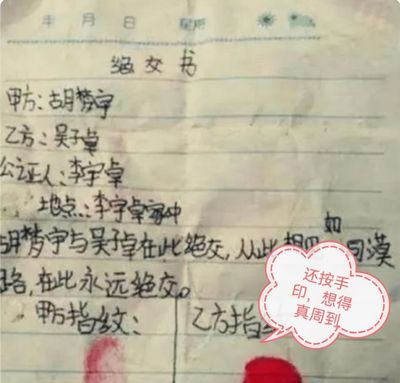 年 月 日 星期
绝交书
甲方:胡梦宇
乙方:吴子卓
公证人:李宇卓
地点:李宇卓家中
胡梦宇与吴子卓在此绝交,从此相见如同漠
路,在此永远绝交。
甲方指纹: 乙方指
还按手
印,想得
真周到